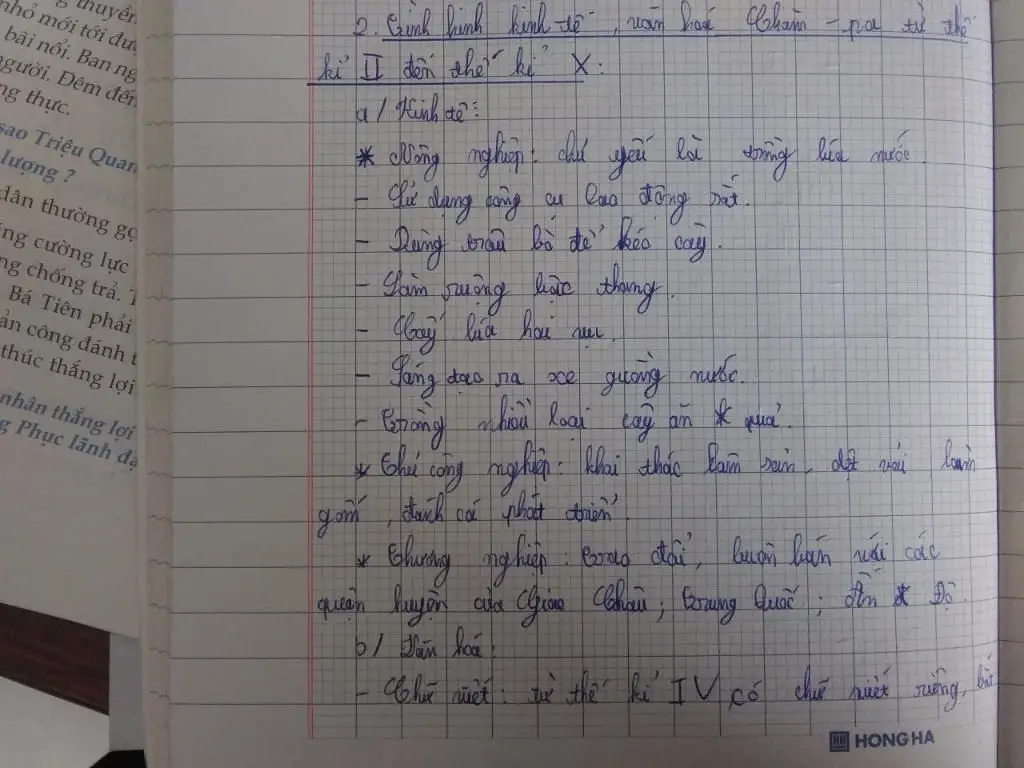 g thuyền
nhỏ mới tới đư
bãi nổi. Ban ng
gười. Đêm đến
ng thực.
sao Triệu Quan
lượng ?
dân thường gọ
ng cường lực
ng chống trả. T
Bá Tiên phải
ản công đánh t
thúc thắng lợi
nhân thắng lợi
g Phục lãnh đạ
2. Tình hình kinh tế, văn hoá Chăm-pa từ thế
kỉ II đến thế kỉ X:
a/ Kinh tế:
* Nông nghiệp: chủ yếu là trồng lúa nước
- Sử dụng công cụ lao động sắt.
- Dùng trâu bò để kéo cày.
- Làm ruộng bậc thang.
- Cấy lúa hai vụ.
- Sáng tạo ra xe guồng nước.
- Trồng nhiều loại cây ăn quả.
* Thủ công nghiệp: khai thác lâm sản, dệt vải làm
gốm, đánh cá phát triển.
* Thương nghiệp: trao đổi, buôn bán với các
quận huyện của Giao Châu; Trung Quốc; Ấn Độ.
b/ Văn hoá:
- Chữ viết: từ thế kỉ IV có chữ viết riêng, bắt
HONG HA